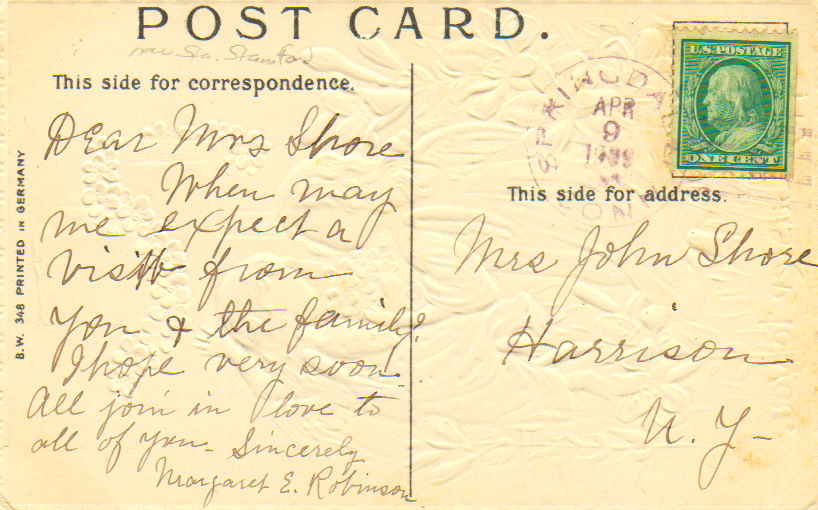 POST CARD.
This side for correspondence.
Dear Mrs Shore
When may
we expect a
visit from
you & the family?
I hope very soon
All join in love to
all of you - Sincerely
Margaret E. Robinson
B.W. 348 PRINTED IN GERMANY
APR
9
U.S. POSTAGE
ONE CENT
This side for address.
Mrs John Shore
Harrison
N. Y-